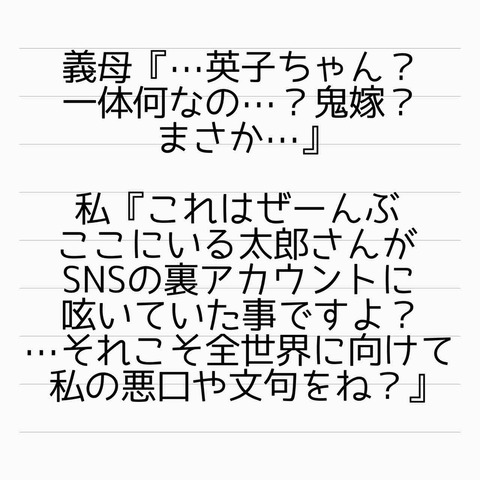 義母『…英子ちゃん？
一体何なの…？鬼嫁？
まさか…』
私『これはぜーんぶ
ここにいる太郎さんが
SNSの裏アカウントに
呟いていた事ですよ？
…それこそ全世界に向けて
私の悪口や文句をね？』